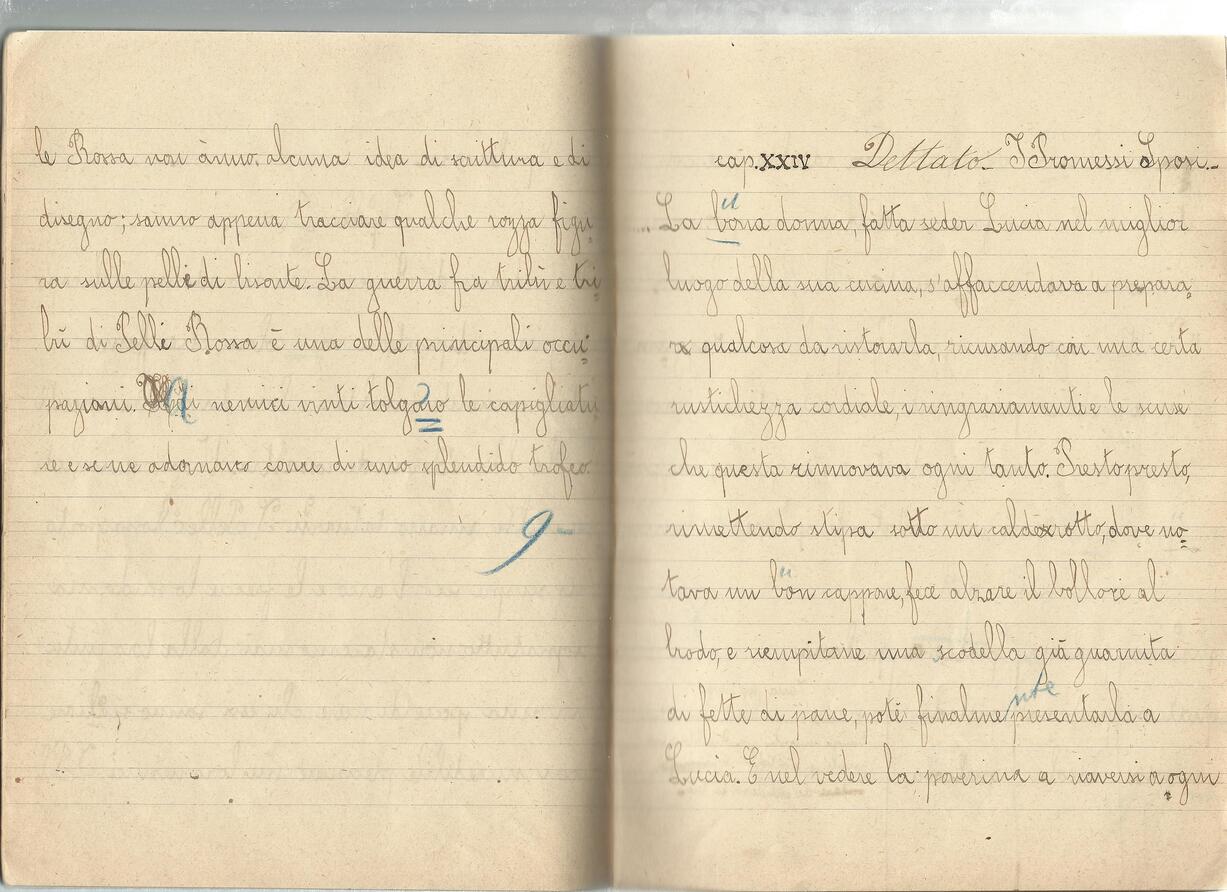 le Rossa non ànno alcuna idea di scrittura e di
disegno; sanno appena tracciare qualche rozza figu-
ra sulle pelli di bisonte. La guerra fra tribù e tri-
bù di Pelli Rossa è una delle principali occu-
pazioni. Ai nemici vinti tolgano le capigliatu
re e se ne adornano come di uno splendido trofeo.
9-
cap. XXIV Dettato. I Promessi Sposi.
La bona donna, fatta seder Lucia nel miglior
u
luogo della sua cucina, s'affaccendava a prepara-
re qualcosa da ristorarla, ricusando con una certa
rustichezza cordiale, i ringraziamenti e le scuse
che questa rinnovava ogni tanto. Presto presto,
rimettendo stipa sotto un calderotto, dove no-
tava un bon cappone, fece alzare il bollore al
u
brodo, e riempitane una scodella già guarnita
di fette di pane, poté finalme presentarla a
nte
Lucia. E nel vedere la poverina a riaversi a ogni